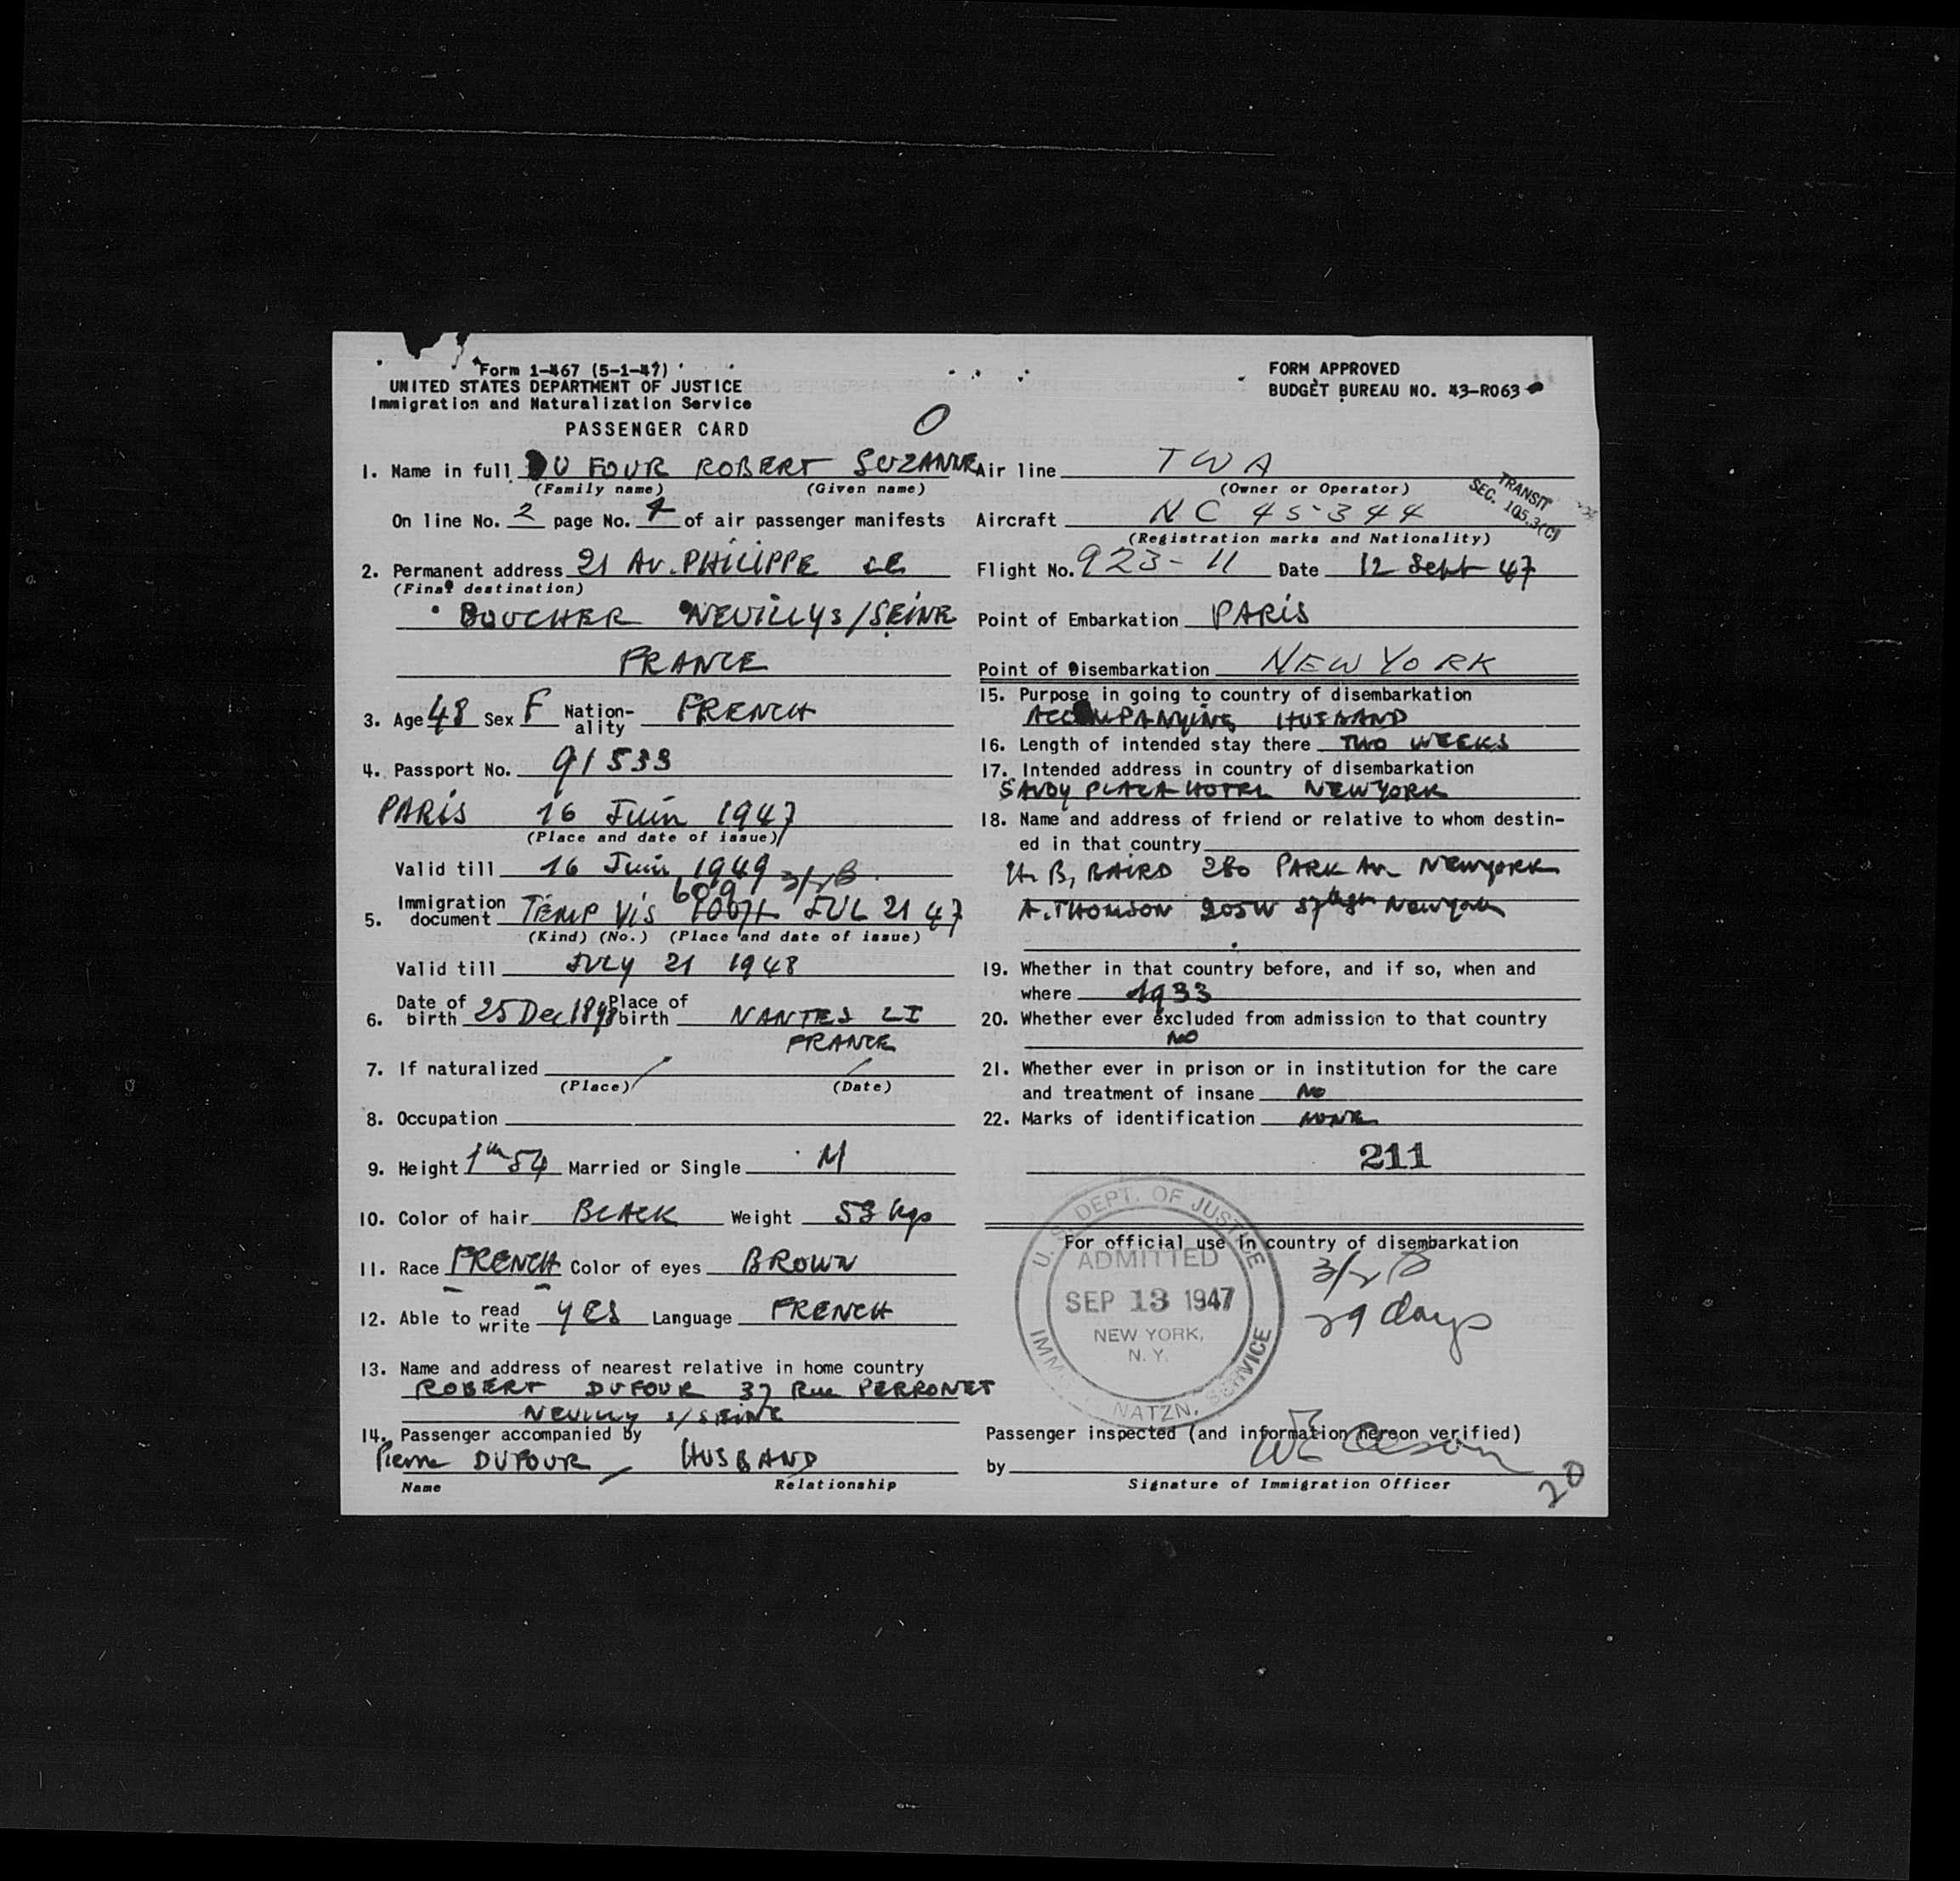 Form I-467 (5-1-47)
UNITED STATES DEPARTMENT OF JUSTICE
Immigration and Naturalization Service
PASSENGER CARD
FORM APPROVED
BUDGET BUREAU NO. 43-R063
O
1. Name in full DU FOUR ROBERT SUZANNE
(Family name) (Given name)
On line No. 2 page No. of air passenger manifests
2. Permanent address 21 AV. PHILIPPE LE
(Final destination)
BOUCHER NEUILLY S/SEINE
FRANCE
3. Age 48 Sex F Nationality FRENCH
4. Passport No. 91533
PARIS 16 Juin 1947
(Place and date of issue)
Valid till 16 Juin 1949 3/2 B
609
5. Immigration document TEMP VIS JUL 21 47
(Kind) (No.) (Place and date of issue)
Valid till JULY 21 1948
6. Date of birth 25 Dec 1898 Place of birth NANTES LI
FRANCE
7. If naturalized
(Place) (Date)
8. Occupation
9. Height 1m 54 Married or Single M
10. Color of hair BLACK Weight 53 kgs
11. Race FRENCH Color of eyes BROWN
12. Able to read write YES Language FRENCH
13. Name and address of nearest relative in home country
ROBERT DUFOUR 37 Rue PERRONET
NEUILLY S/SEINE
14. Passenger accompanied by
Pierre DUFOUR HUSBAND
Name Relationship
Air line TWA
(Owner or Operator)
TRANSIT
SEC. 105.3(C)
Aircraft NC 45344
(Registration marks and Nationality)
Flight No. 923-11 Date 12 Sept 47
Point of Embarkation PARIS
Point of Disembarkation NEW YORK
15. Purpose in going to country of disembarkation
ACCOMPANYING HUSBAND
16. Length of intended stay there TWO WEEKS
17. Intended address in country of disembarkation
SAVOY PLAZA HOTEL NEW YORK
18. Name and address of friend or relative to whom destin-
ed in that country
H. B, BAIRD 280 PARK AV NEWYORK
A. THOMSON 205W 57 New York
19. Whether in that country before, and if so, when and
where 1933
20. Whether ever excluded from admission to that country
NO
21. Whether ever in prison or in institution for the care
and treatment of insane NO
22. Marks of identification NONE
211
For official use in country of disembarkation
3/2 B
29 days
U. S. DEPT. OF JUSTICE
ADMITTED
SEP 13 1947
NEW YORK,
N. Y.
IMM. NATZN. SERVICE
Passenger inspected (and information hereon verified)
by
Signature of Immigration Officer
20